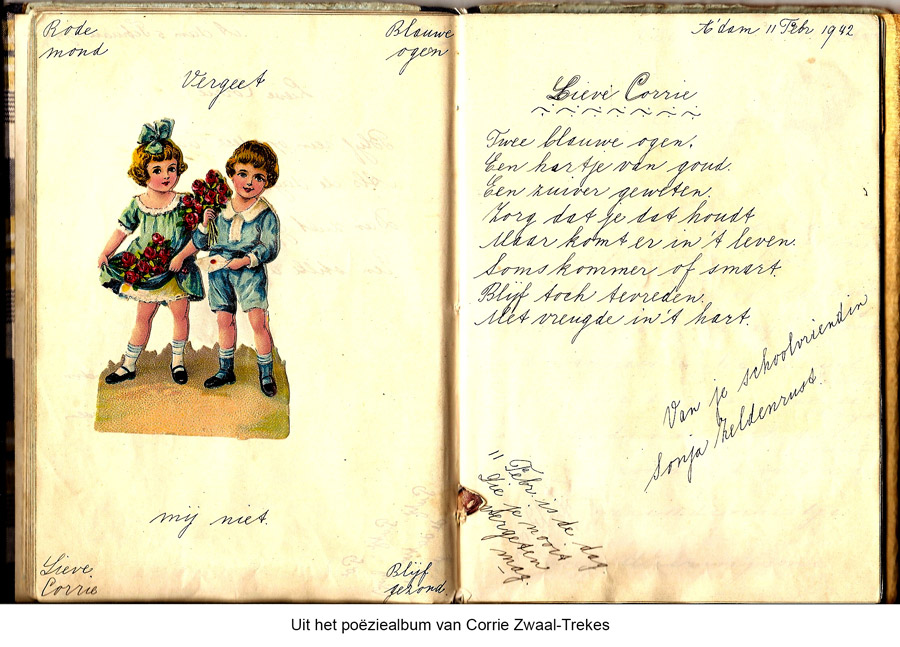 Rode
mond
Blauwe
ogen
Vergeet
mij niet.
Lieve
Corrie
Blijf
gezond.
A'dam 11 Febr 1942
Lieve Corrie
Twee blauwe ogen.
Een hartje van goud.
Een zuiver geweten.
Zorg dat je dat houdt
Maar komt er in 't leven.
Soms kommer of smart.
Blijf toch tevreden.
Met vreugde in 't hart.
Van je schoolvriendin
Sonja Zeldenrust.
11 Febr. is de dag
Die je nooit
vergeten
mag.
Uit het poëziealbum van Corrie Zwaal-Trekes